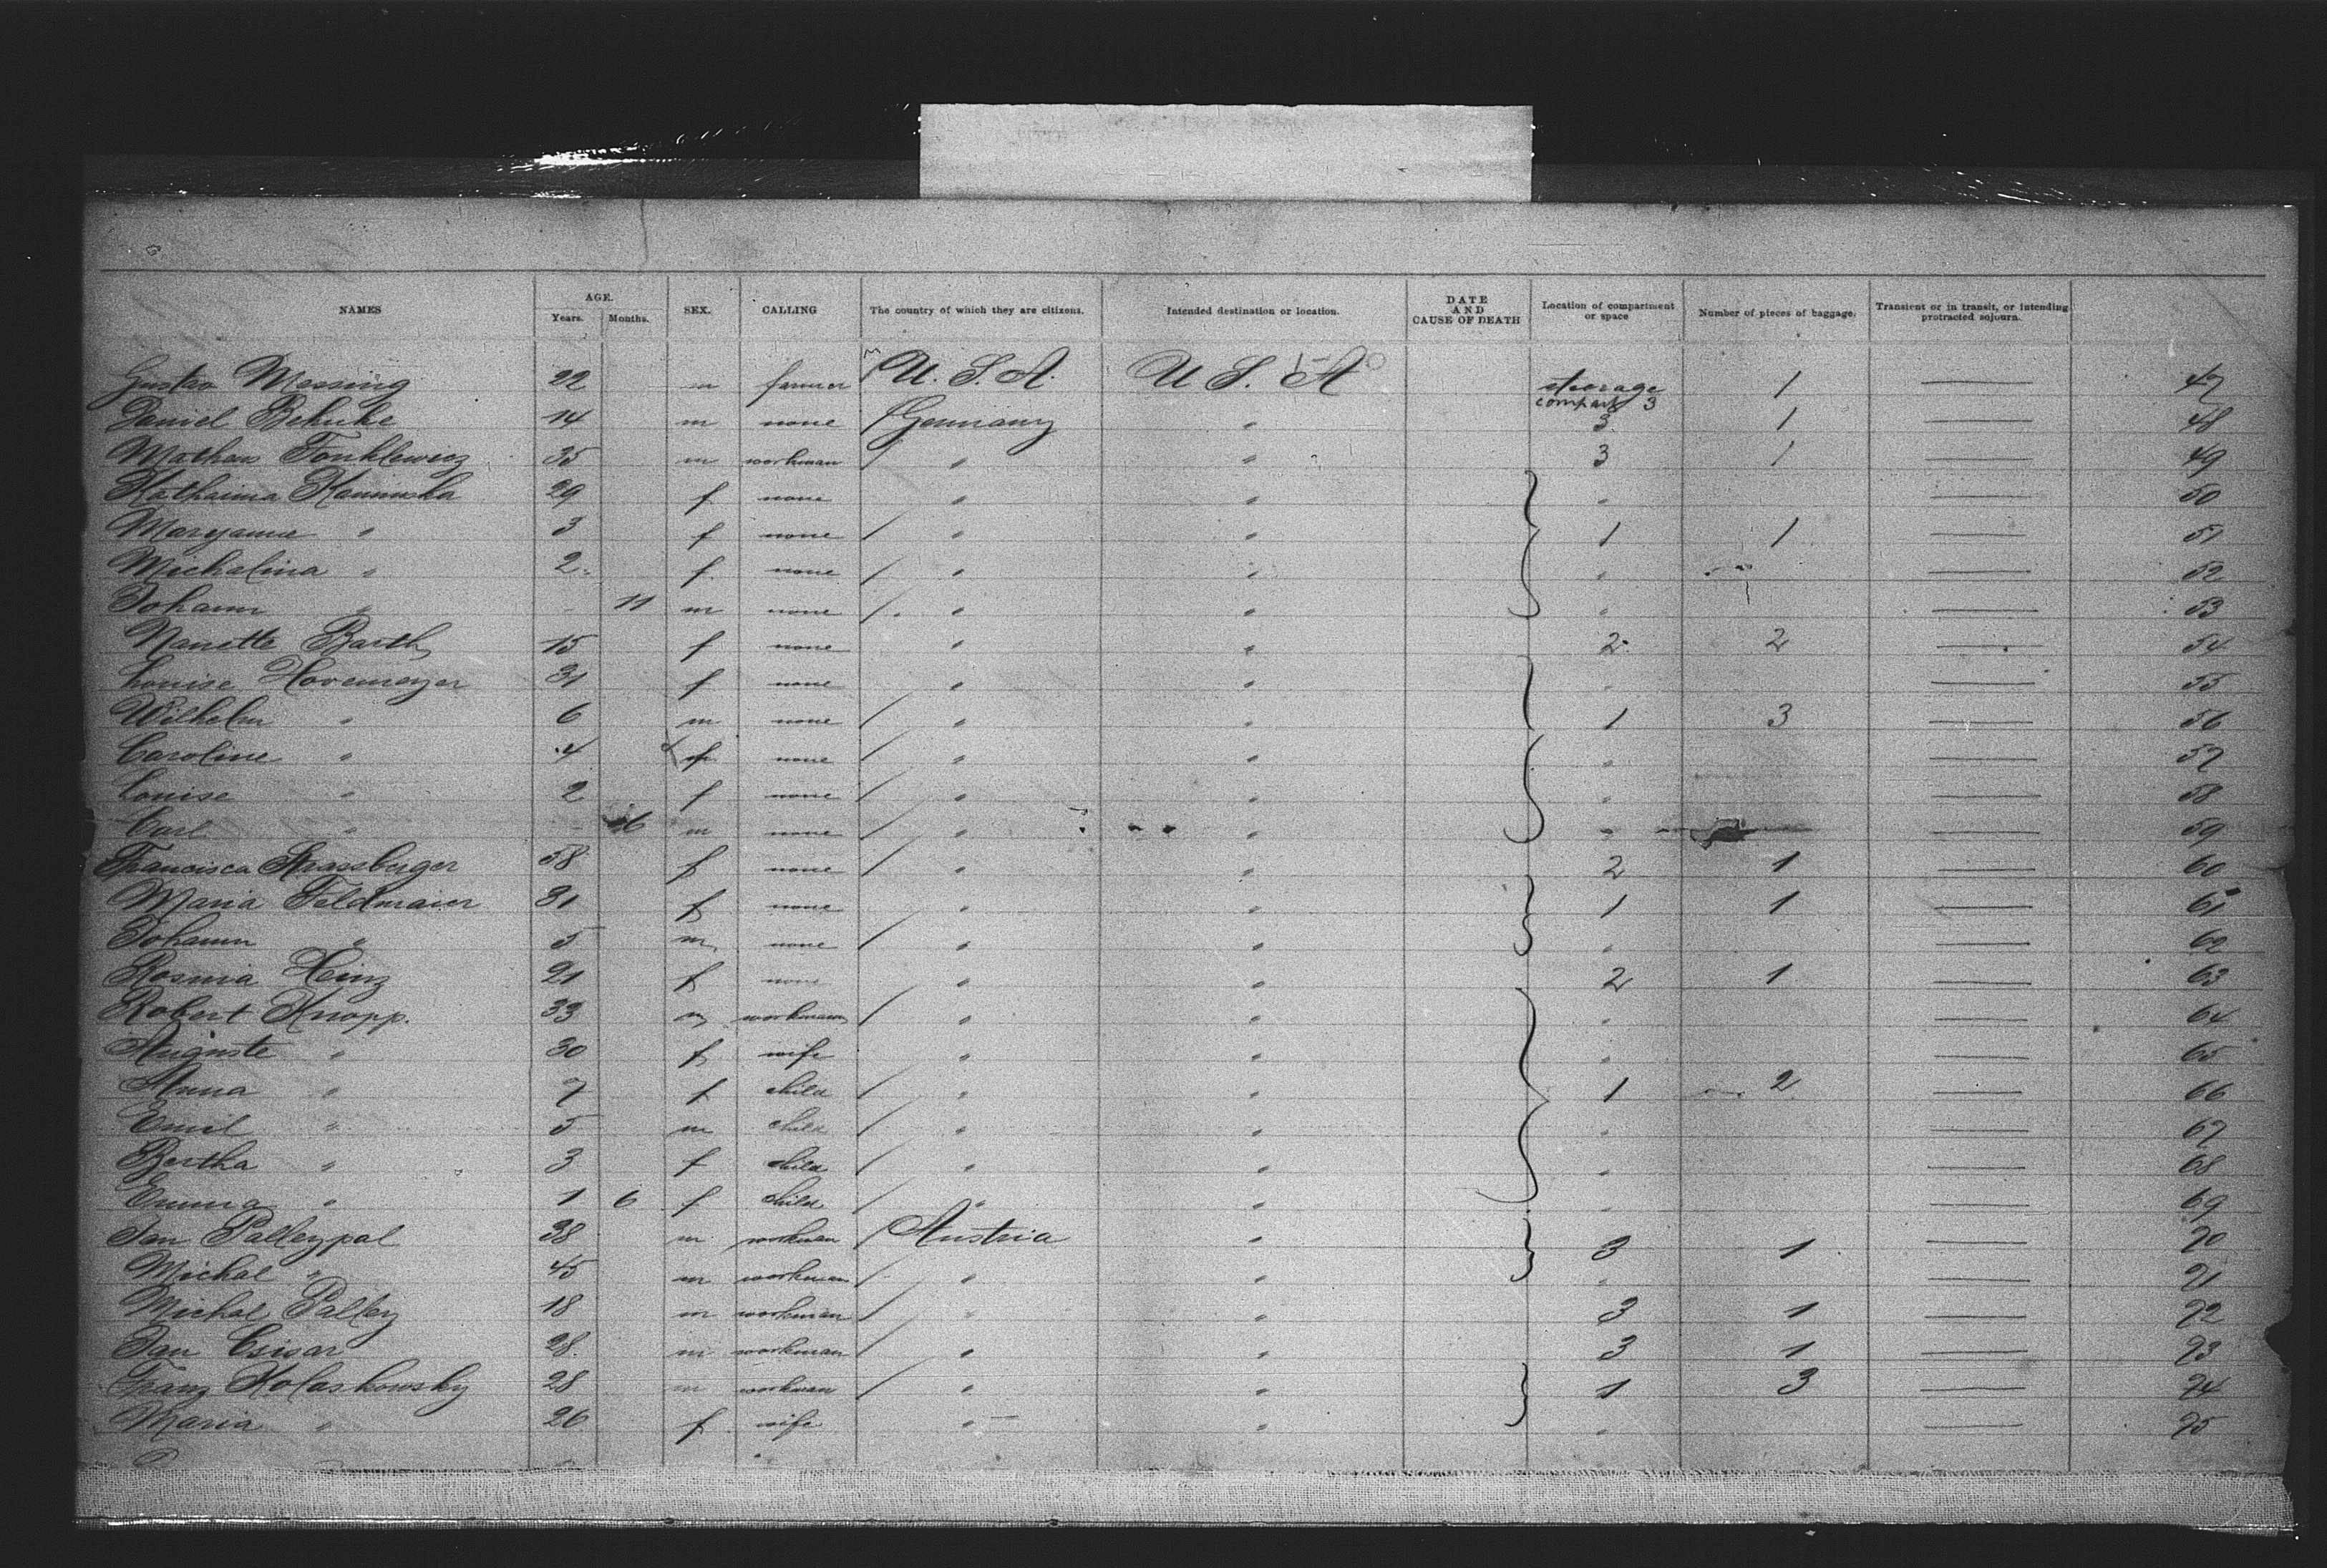 NAMES AGE. Years. Months. SEX. CALLING The country of which they are citizens. Intended destination or location. DATE AND CAUSE OF DEATH Location of compartment or space Number of pieces of baggage. Transient or in transit, or intending protracted sojourn.
Gustav Messing 22 m farmer U. S. A. U S. A steerage compart 3 1 — 47
Daniel Behnke 14 m none Germany " 3 1 — 48
Mathew Tonklewicz 35 m workman " " 3 1 — 49
Katharina Kaminska 29 f none " " " — 50
Maryanne " 3 f none " " 1 1 — 51
Michalina " 2 f none " " " — 52
Johann " - 11 m none " " " — 53
Nanette Barth 15 f none " " 2 2 — 54
Louise Hovemeyer 31 f none " " " — 55
Wilhelm " 6 m none " " 1 3 — 56
Caroline " 4 f none " " " — 57
Louise " 2 f none " " " — 58
Carl " - 6 m none " " " — 59
Francisca Strassberger 58 f none " " 2 1 — 60
Maria Feldmaier 31 f none " " 1 1 — 61
Johann " 5 m none " " " — 62
Rosina Heinz 21 f none " " 2 1 — 63
Robert Knopp. 33 m workman " " " — 64
Auguste " 30 f wife " " " — 65
Anna " 7 f child " " 1 2 — 66
Emil " 5 m child " " " — 67
Bertha " 3 f child " " " — 68
Emma " 1 6 f child " " " — 69
Jan Palleypal 38 m workman Austria " 3 1 — 70
Michal " 45 m workman " " " — 71
Michal Palley 18 m workman " " 3 1 — 72
Jan Csisar 28 m workman " " 3 1 — 73
Franz Kolaskowsky 28 m workman " " 1 3 — 74
Maria " 26 f wife " " " — 75